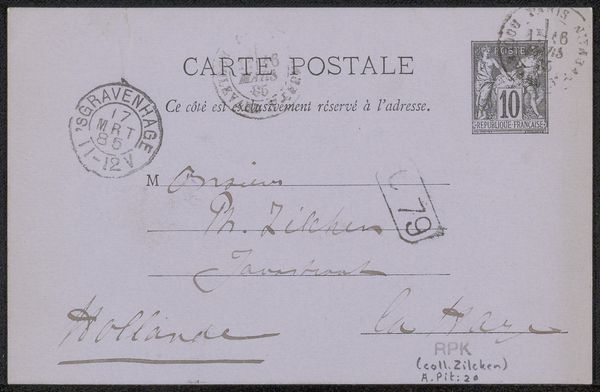 CARTE POSTALE
Ce côté est exclusivement réservé à l'adresse.
POSTE
10
REPUBLIQUE FRANÇAISE
PARIS
16
MARS
85
'SGRAVENHAGE
17
MRT
85
11-12V
Monsieur
Ph. Zilcken
79
Javastraat
Hollande
la Haye
RPK
(coll. Zilcken)
A. Pit: 20